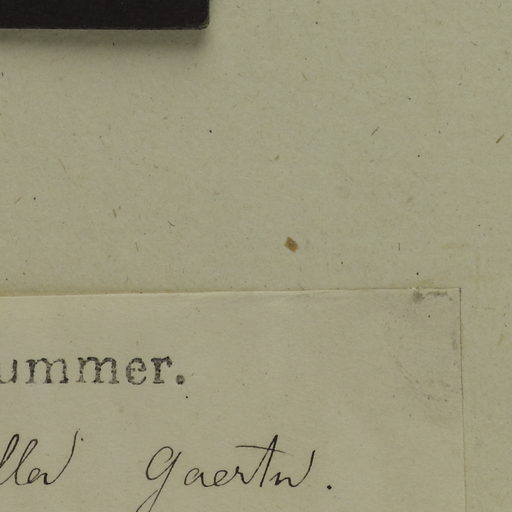 ummer.
lla Gaertn.